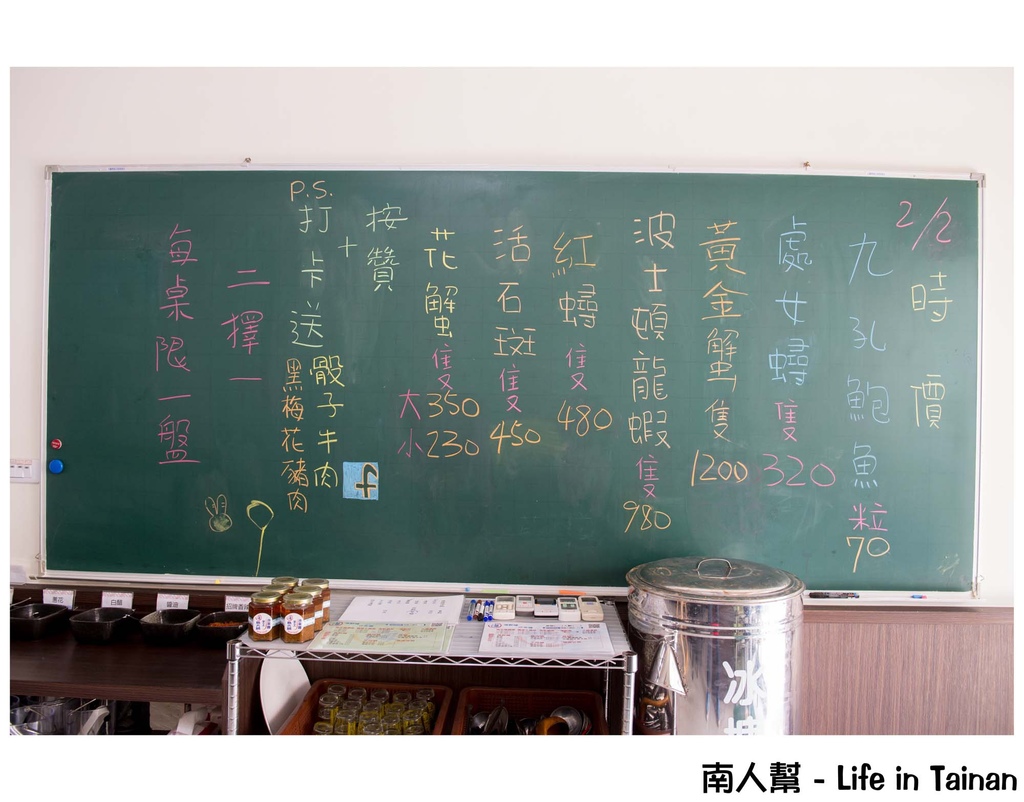 2/2
時價
九孔鮑魚粒70
處女蟳隻320
黃金蟹隻1200
波士頓龍蝦隻980
紅蟳隻480
活石斑隻450
花蟹隻
大350
小230
P.S.
按讚
+
打卡送
骰子牛肉
黑梅花豬肉
二擇一
每桌限一盤
f
蔥花
白醋
醬油
冰
南人幫 - Life in Tainan